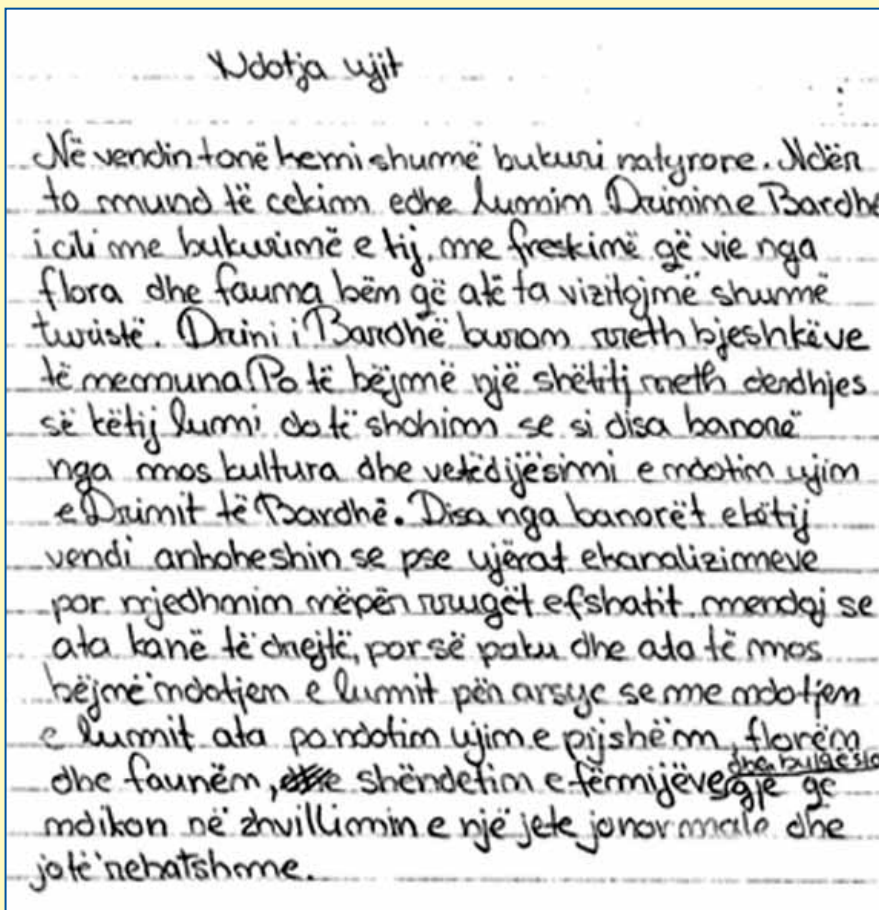 Ndotja ujit
Në vendin tonë kemi shumë bukuri natyrore. Ndër
to mund të cekim edhe lumin Drinin e Bardhë
i cili me bukurinë e tij, me freskinë që vie nga
flora dhe fauna bën që atë ta vizitojmë shumë
turistë. Drini i Bardhë buron rreth bjeshkëve
të memuna. Po të bëjmë një shëtitj rreth derdhjes
së këtij lumi do të shohim se si disa banorë
nga mos kultura dhe vetëdijësimi e ndotin ujin
e Drinit të Bardhë. Disa nga banorët e këtij
vendi ankoheshin se pse ujërat e kanalizimeve
por rrjedhnin nëpër rrugët e fshatit mendoj se
ata kanë të drejtë, por së paku dhe ata të mos
bëjmë ndotjen e lumit për arsye se me ndotjen
e lumit ata pondotin ujin e pijshëm, florën
dhe faunën, shëndetin e fëmijëve dhe bulgësia gje qe
ndikon në zhvillimin e një jete jonormale dhe
jo të rehatshme.